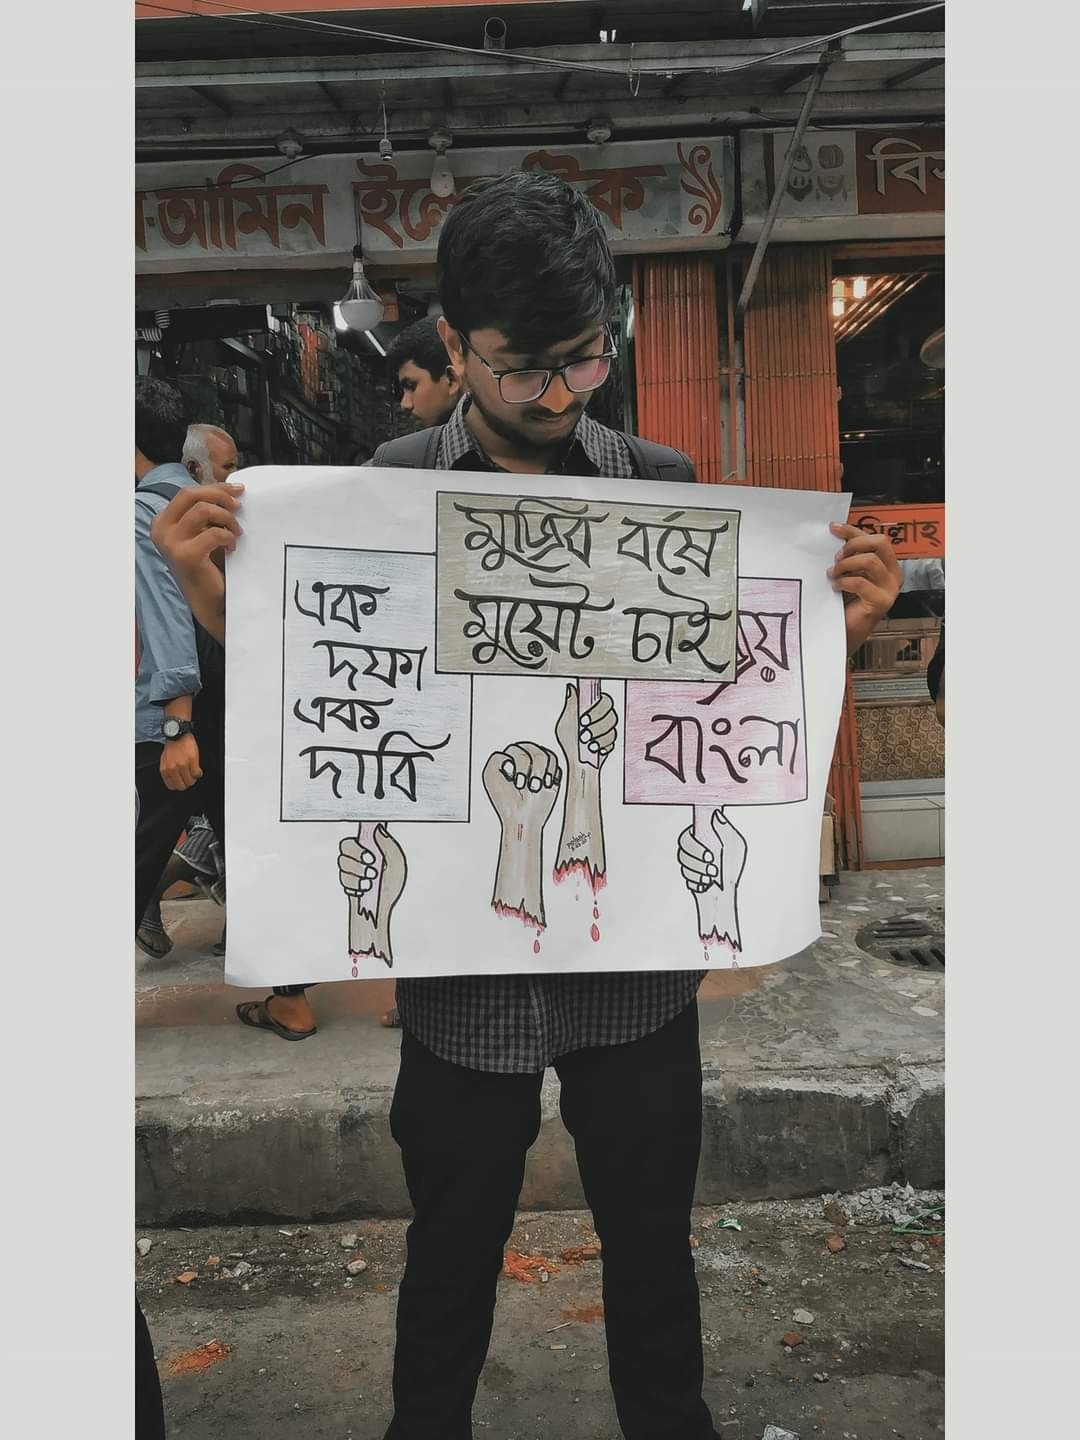 আমিন ইলেকট্রিক
বিস
মিল্লাহ্
মুজিব বর্ষে
মুয়েট চাই
এক
দফা
এক
দাবি
জয়
বাংলা